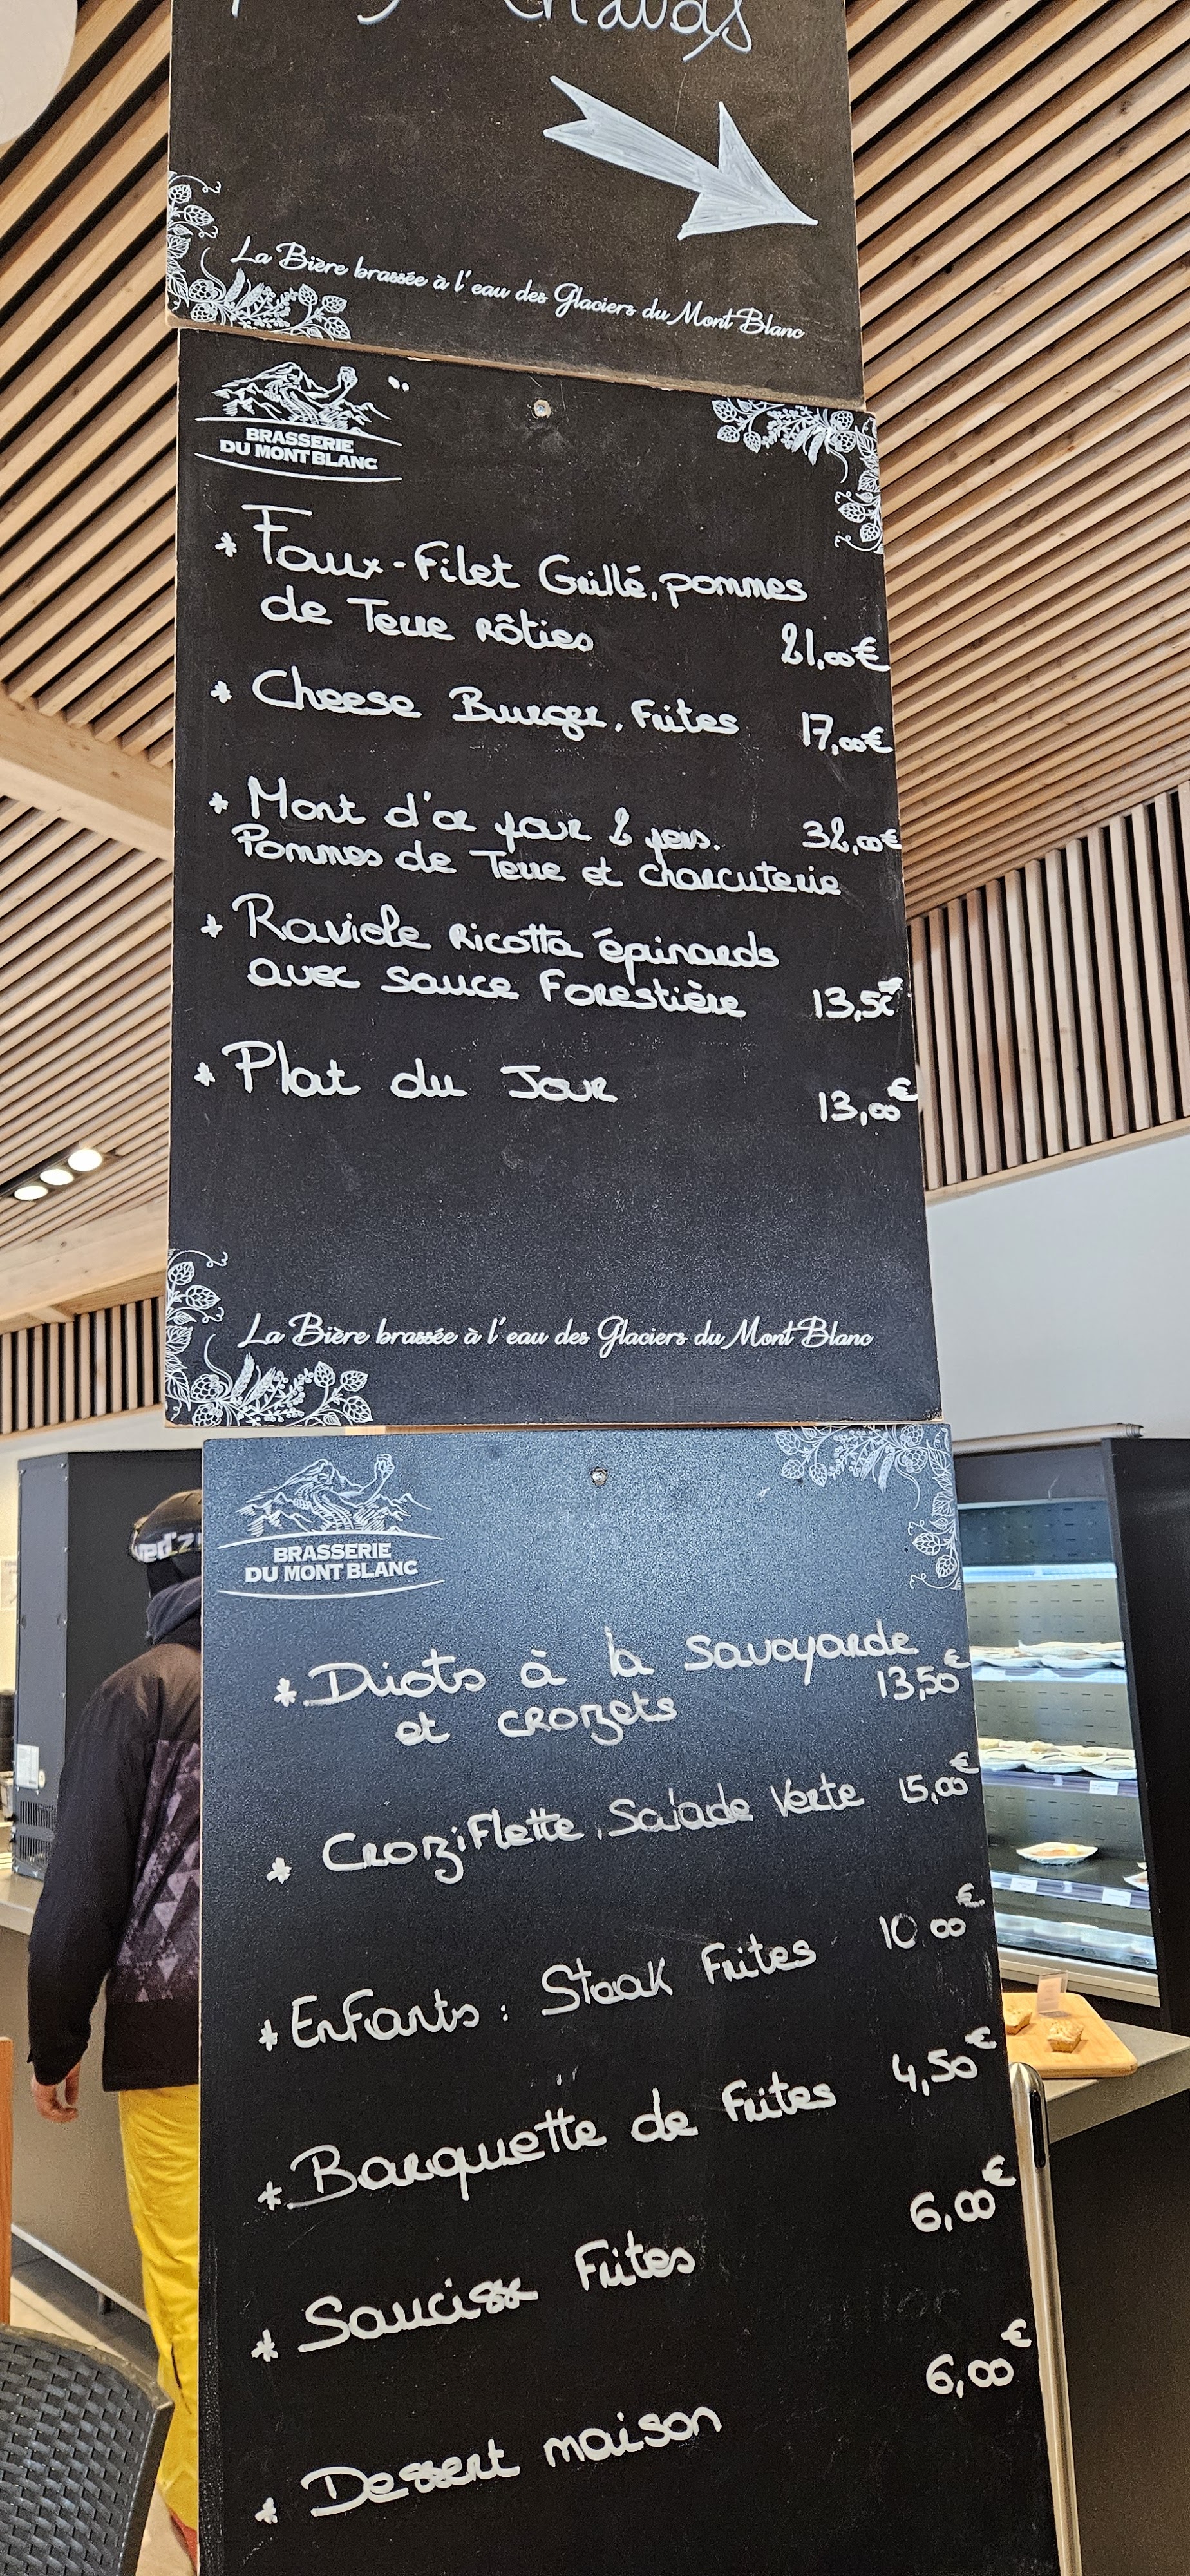 Chauds
La Bière brassée à l'eau des Glaciers du Mont Blanc
BRASSERIE
DU MONT BLANC
* Faux-Filet Grillé, pommes
de Terre rôties 21,00€
* Cheese Burger, Frites 17,00€
* Mont d'or pour 2 pers. 32,00€
Pommes de Terre et charcuterie
* Raviole Ricotta épinards
avec sauce Forestière 13,50€
* Plat du Jour 13,00€
La Bière brassée à l'eau des Glaciers du Mont Blanc
BRASSERIE
DU MONT BLANC
* Diots à la Savoyarde
et crozets 13,50€
* Croziflette, Salade Verte 15,00€
* Enfants : Steak Frites 10 00€
* Barquette de Frites 4,50€
* Saucisse Frites 6,00€
* Dessert maison 6,00€